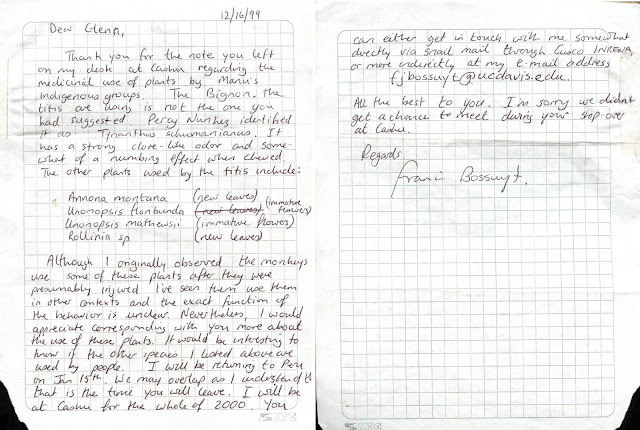 12/16/99
Dear Glenn,
Thank you for the note you left
on my desk at Cashu regarding the
medicinal use of plants by Manu's
indigenous groups. The Bignon. the
titis are using is not the one you
had suggested. Percy Nuñez identified
it as Tynanthus schumanianus. It
has a strong clove-like odor and some-
what of a numbing effect when chewed.
The other plants used by the titis include:
Annona montana (new leaves)
Unonopsis floribunda (new leaves) (immature flowers)
Unonopsis mathewsii (immature flowers)
Rollinia sp. (new leaves)
Although I originally observed the monkeys
use some of these plants after they were
presumably injured I've seen them use them
in other contexts and the exact function of
the behavior is unclear. Nevertheless, I would
appreciate corresponding with you more about
the use of these plants. It would be interesting to
know if the other species I listed above are
used by people. I will be returning to Peru
on Jan 15th. We may overlap as I understand th
that is the time you will leave. I will be
at Cashu for the whole of 2000. You
can either get in touch with me somewhat
directly via snail mail through Cusco INRENA
or more indirectly at my e-mail address
fjbossuyt@ucdavis.edu.
All the best to you. I'm sorry we didn't
get a chance to meet during your stop over
at Cashu.
Regards,
Francis Bossuyt.